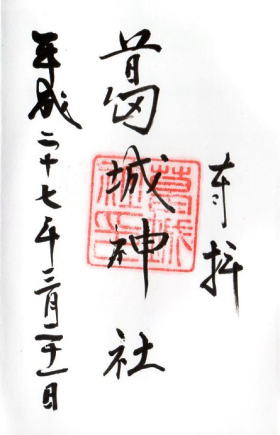 奉拝
葛城神社
平成二十七年三月二十一日